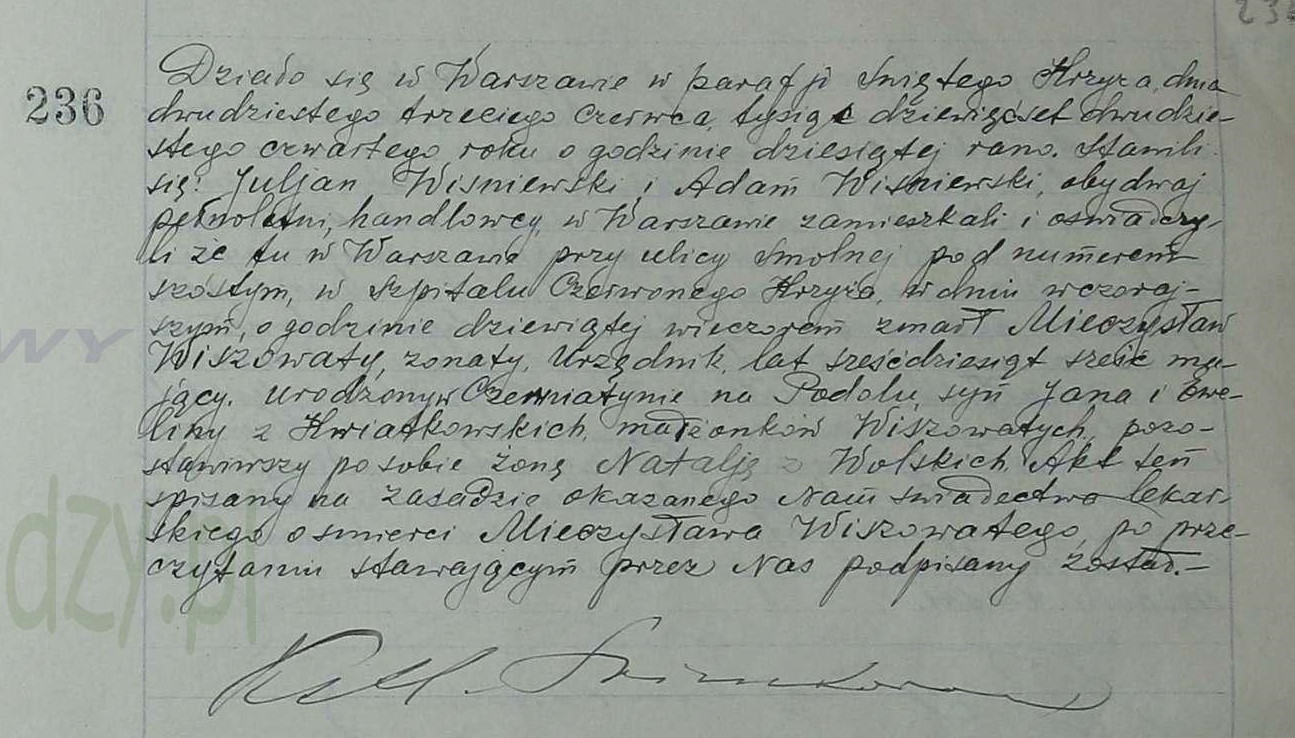 236
Działo się w Warszawie w parafji Świętego Krzyża, dnia
dwudziestego trzeciego Czerwca, tysiąc dziewięćset dwudzie-
stego czwartego roku o godzinie dziesiątej rano. Stawili
się: Juljan Wiśniewski i Adam Wiśniewski, obydwaj
pełnoletni, handlowcy, w Warszawie zamieszkali i oświadczy-
li że tu w Warszawie przy ulicy Smolnej pod numerem
szóstym, w Szpitalu Czerwonego Krzyża, w dniu wczoraj-
szym, o godzinie dziewiątej wieczorem zmarł Mieczysław
Wiszowaty, żonaty, Urzędnik, lat sześćdziesiąt sześć ma-
jący. urodzony w Czerniatynie na Podolu, syn Jana i Ewe-
liny z Kwiatkowskich, małżonków Wiszowatych, pozo-
stawiwszy po sobie żonę Natalję z Wolskich. Akt ten
spisany na zasadzie okazanego Nam świadectwa lekar-
skiego o śmierci Mieczysława Wiszowatego, po prze-
czytaniu stawającym przez Nas podpisany został.-
dzy.pl
WY